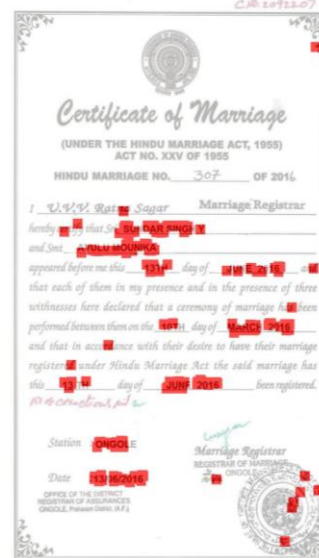 C.A. 2092207
Certificate of Marriage
(UNDER THE HINDU MARRIAGE ACT, 1955)
ACT NO. XXV OF 1955
HINDU MARRIAGE NO. 307 OF 2016
I U.V.V. Ratna Sagar Marriage Registrar
hereby that
and Smt MOUNIKA
appeared before me this 13TH day of JUNE 2016 and
that each of them in my presence and in the presence of three
witnesses here declared that a ceremony of marriage has been
performed between them on the day of MARCH 2016
and that in accordance with their desire to have their marriage
registered under Hindu Marriage Act the said marriage has
this 13TH day of JUNE 2016 been registered.
Station ONGOLE
Marriage Registrar
REGISTRAR OF MARRIAGE
ONGOLE
Date 13/06/2016
OFFICE OF THE DISTRICT
REGISTRAR OF ASSURANCES
ONGOLE, Prakasam District. (A.P.)